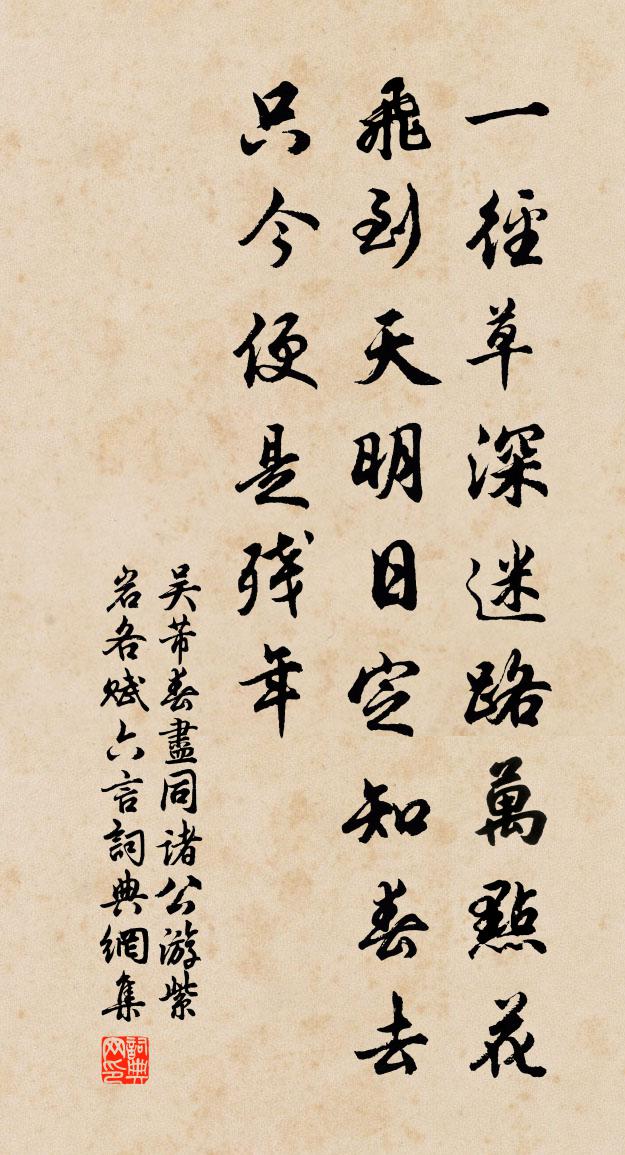 一徑草深迷路萬點花
飛到天明日定知春去
只今便是残年
吴芾春盡同诸公游紫
岩各赋六言詞典網集
詞典网印